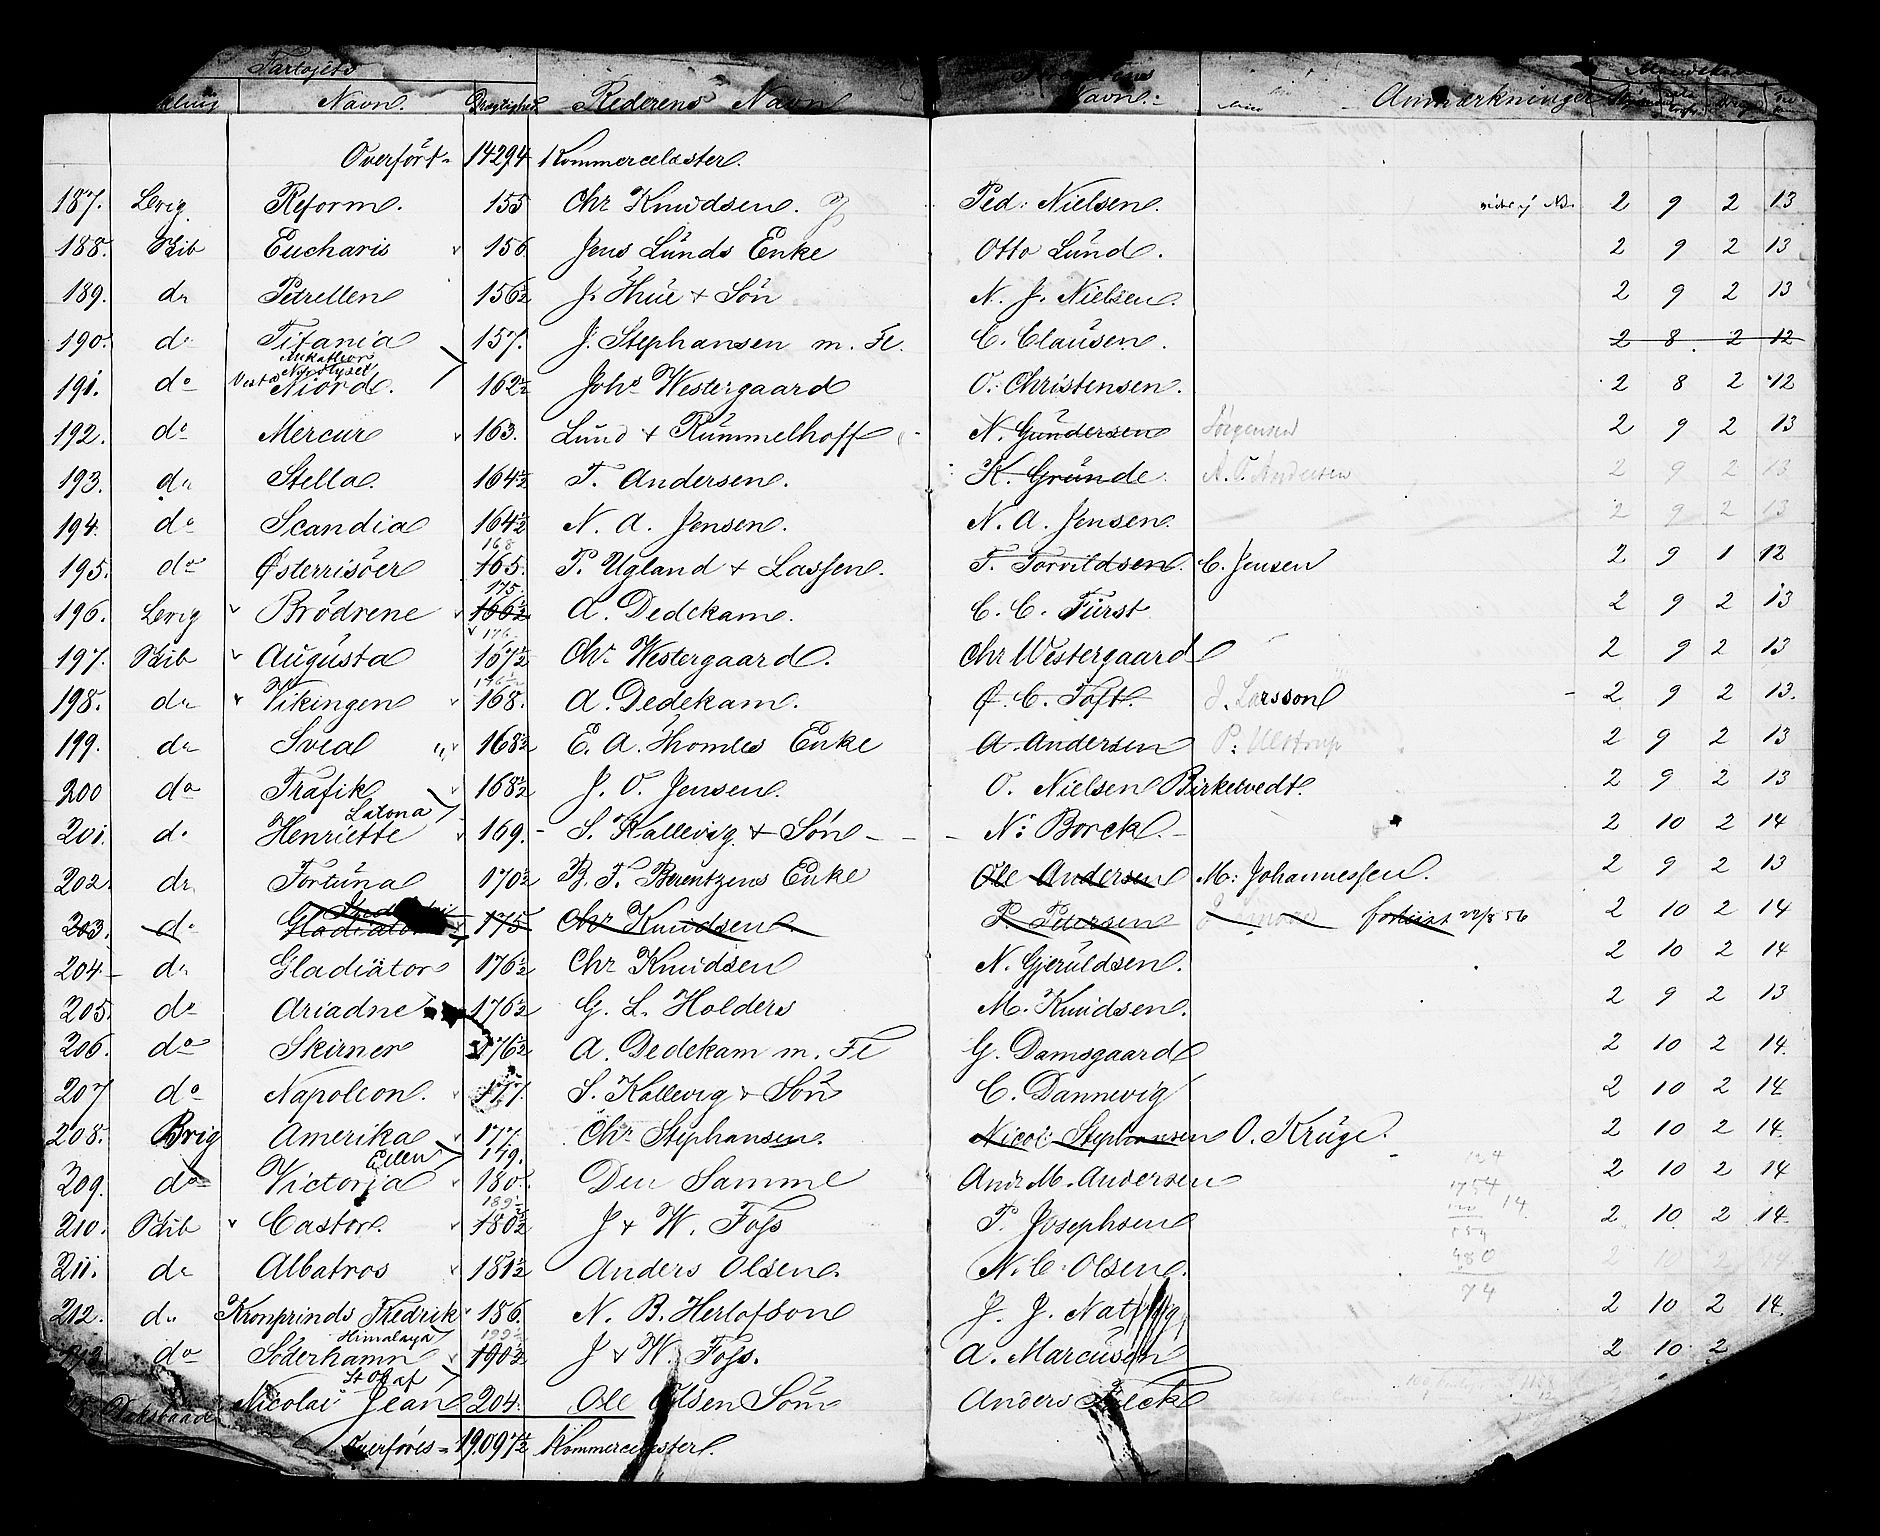 Fartøiets
Navn. Drægtighed Rederens Navn Navn. Anmærkninger
Overført 14294 Kommercelæster.
187. Brig Reform. 155 Chr Knudsen. Ped: Nielsen. 2 9 2 13
188. Skib Eucharis 156 Jens Lunds Enke Otto Lund. 2 9 2 13
189. do Petrellen 156½ J. Thue + Søn N. J. Nielsen. 2 9 2 13
190. do Titania 157. J. Stephansen m. Fl. C. Clausen. 2 8 2 12
Nordlyset
191. do Niord. 162½ Johs Westergaard O. Christensen. 2 8 2 12
192. do Mercur 163. Lund + Rummelhoff N. Gundersen Jørgensen 2 9 2 13
193. do Stella. 164½ T. Andersen. K. Grunde. A. O. Andersen 2 9 2 13
194. do Scandia 164½ N. A. Jensen. N. A. Jensen. 2 9 2 13
168
195. do Østerrisöer 165. P. Ugland + Lassen. T. Torvildsen. C. Jensen 2 9 1 12
175.
196. Brig Brödrene 166½ A. Dedekam. C. C. Fürst 2 9 2 13
176.
197. Skib Augusta 167½ Chr. Westergaard. Chr Westergaard 2 9 2 13
176½
198. do Vikingen 168. A. Dedekam. C. Toft. J. Larsson 2 9 2 13.
199. do Svea 168½ E. A. Thomles Enke A. Andersen P. Ulstrup 2 9 2 13
200 do Trafik 168½ J. O. Jensen. O. Nielsen Birkevedt. 2 9 2 13
Latona
201. do Henriette 169. S. Kallevig + Søn N: Borck. 2 10 2 14
202. do Fortuna 170½ B. T. Berentzens Enke Ole Andersen M: Johannessen. 2 9 2 13
203. do Gladiator 175 Chr Knudsen P. Petersen forliist 22/8 56 2 10 2 14
204 do Gladiator 176½ Chr Knudsen N. Gjeruldsen. 2 10 2 14
205. do Ariadne 176½ G. L. Holders M. Knudsen. 2 9 2 13
206. do Skirner 176½ A. Dedekam m. Fl G. Damsgaard 2 10 2 14.
207 do Napoleon. 177. S. Kallevig + Søn C. Dannevig 2 10 2 14.
208. Brig Amerika 177. Chr. Stephansen. Nicoi: Stephansen O. Krüge. 2 10 2 14.
Ellen 179.
209. do Victoria 180. Den Samme Andr. M. Andersen 2 10 2 14
189½ 1754 14
210. Skib Castor. 180½ J + W. Foss P. Josephsen 2 10 2 14.
554
211. do Albatros 181½ Anders Olsen. N. C. Olsen. 480 2 10 2 14
74
212. do Kronprinds Fredrik 186. N. B. Herlofson J. J. Natvig 2 10 2 14.
Himalaya 199½
do Söderhamn 190½ J + W. Foss. A. Marcuson 2 10 2
St Olaf
Nicolai Jean 204. Ole Olsen Søm Anders Fleck
Overføres = 19097½ Kommercelæster.